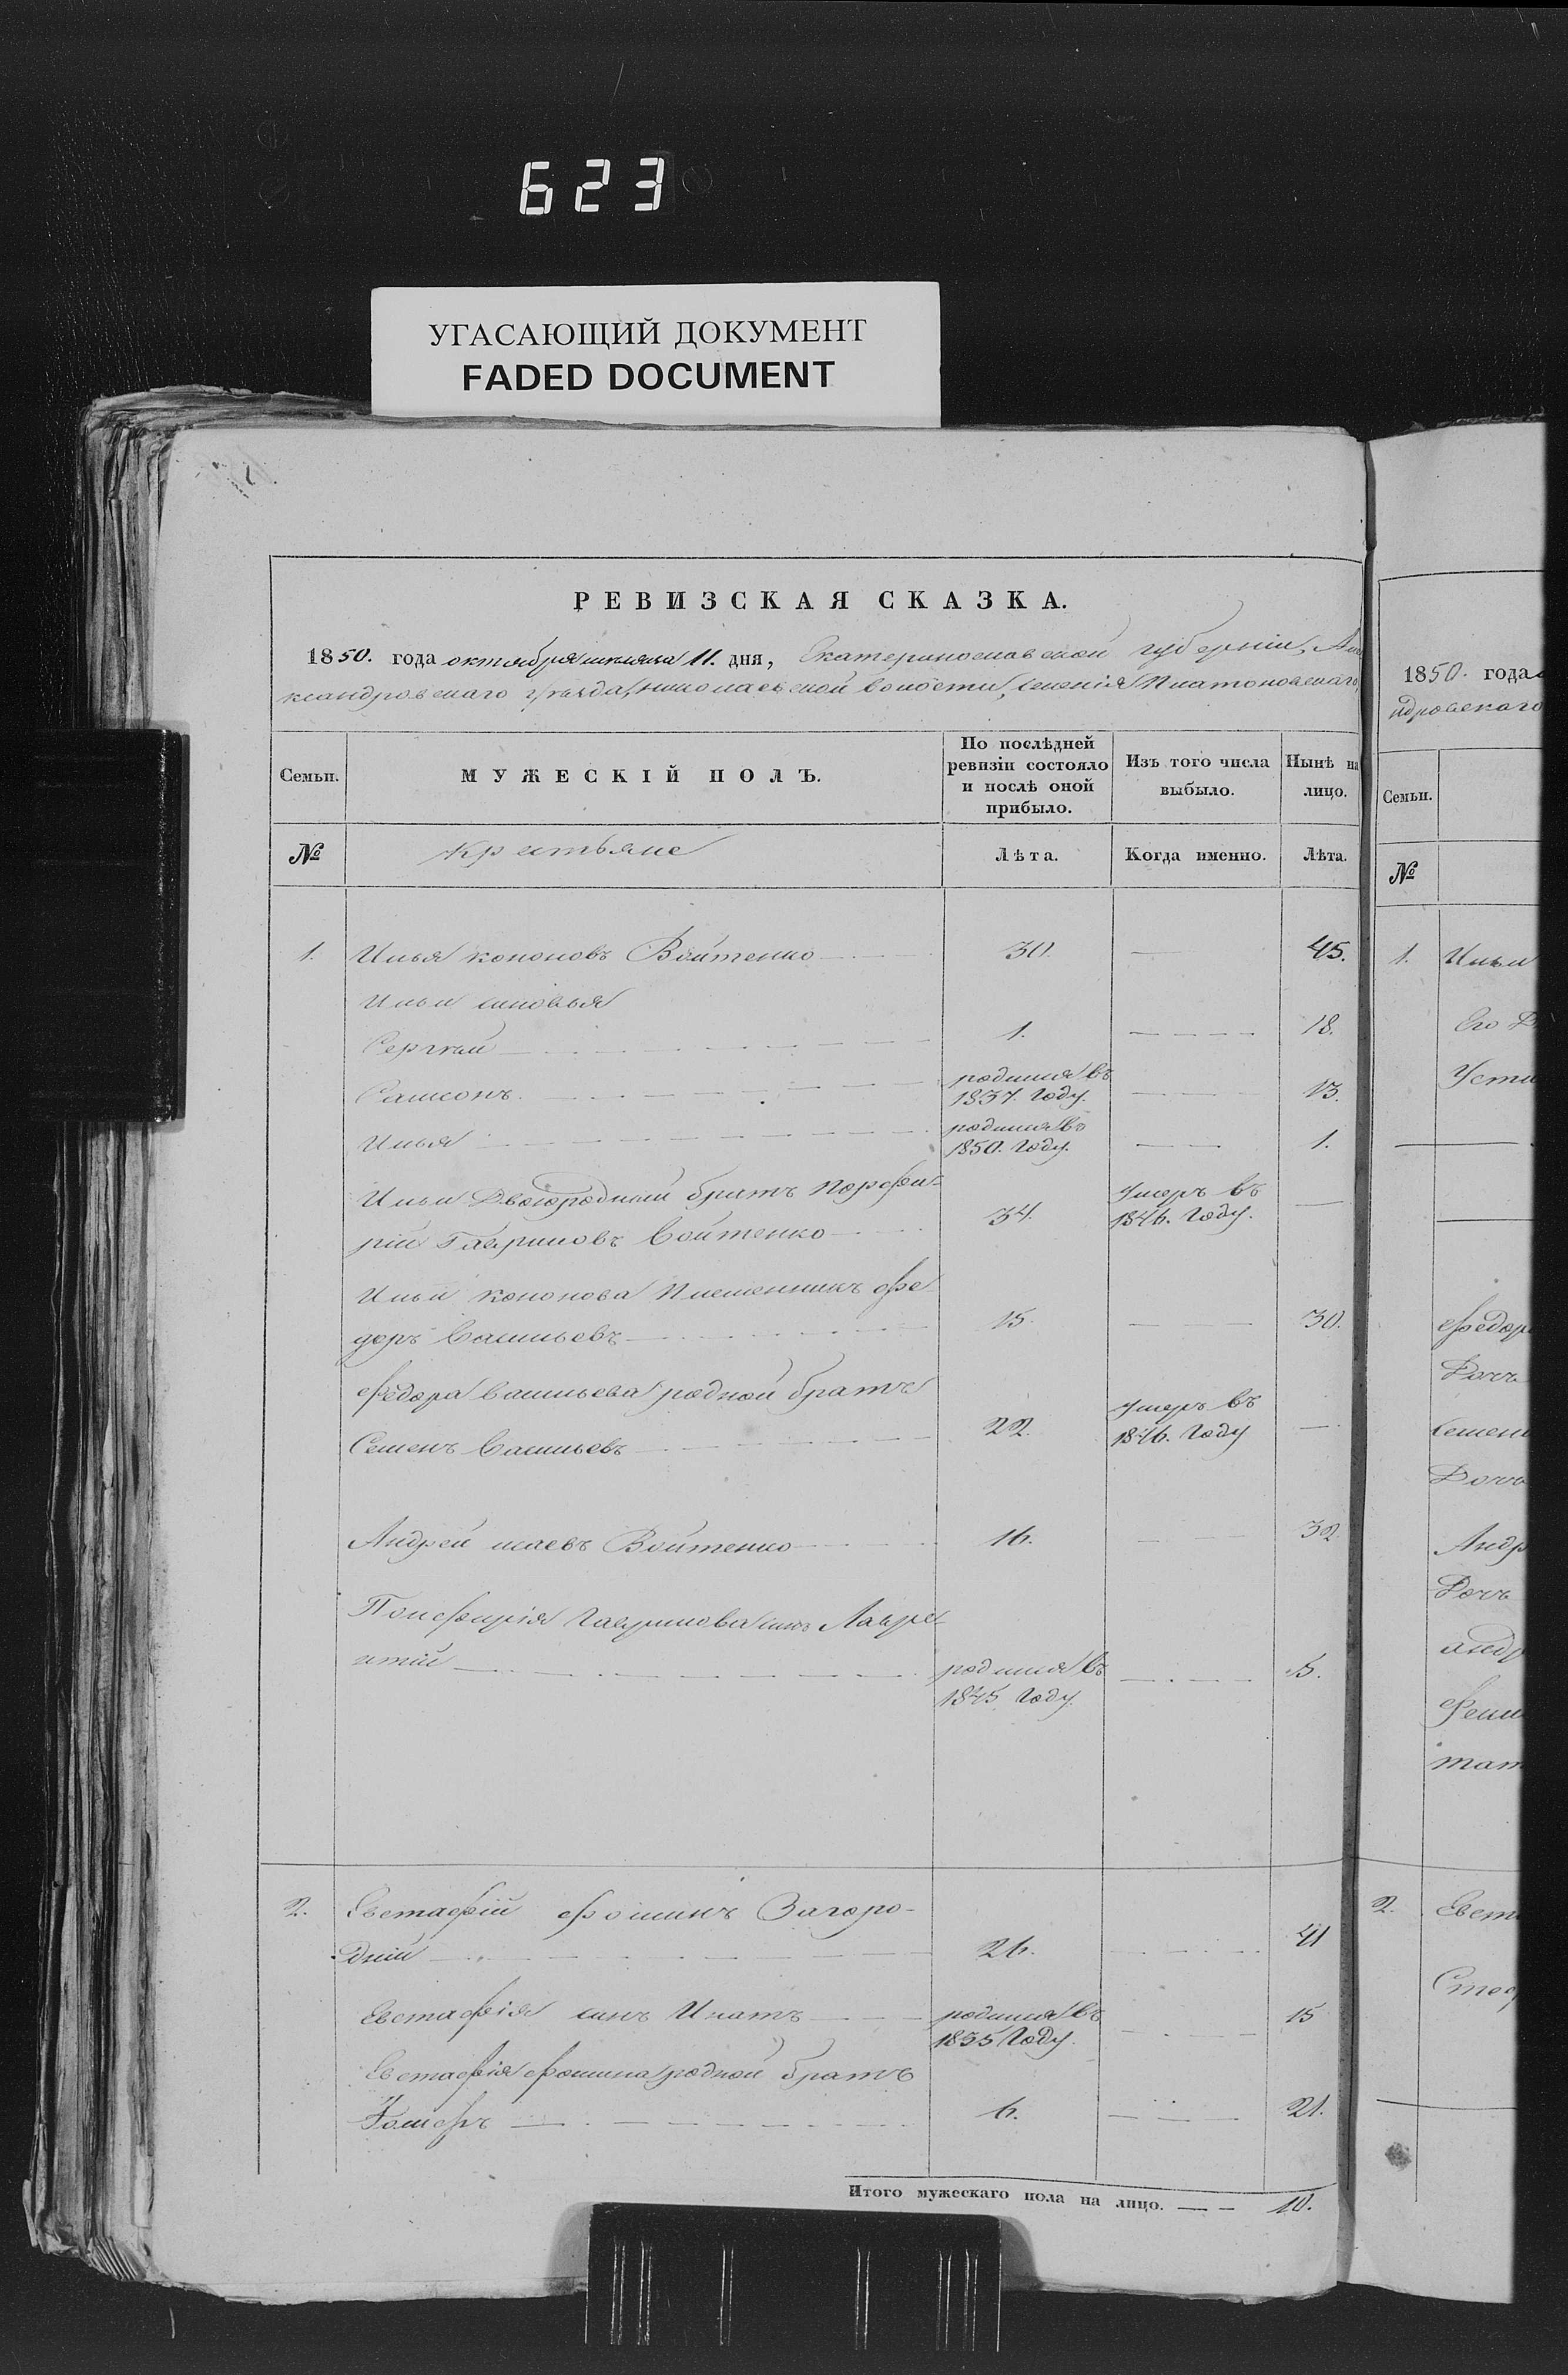 623
УГАСАЮЩИЙ ДОКУМЕНТ
FADED DOCUMENT
РЕВИЗСКАЯ СКАЗКА.
1850. года октября месяца 11. дня, Екатеринославской губерніи, Але
ксандровскаго уезда, николаевской волости, селенія Платоновскаго,
Семьи.
МУЖЕСКІЙ ПОЛЪ.
По послѣдней ревизіи состояло и послѣ оной прибыло.
Изъ того числа выбыло.
Нынѣ на лицо.
№
крестьяне
Лѣта.
Когда именно.
Лѣта.
1. Илья кононовъ Войтенко 30. 45.
Ильи синовья
Сергѣй 1. 18.
Самсонъ родился въ 1837. Году 13.
Илья родился въ 1850. Году. 1.
Ильи Двоюродный братъ порфи-
рій Гавриловъ Войтенко 34. умеръ въ 1846. Году.
Ильи кононова Племенникъ фе
деръ Васильевъ 15. 30.
федора васильева родной братъ
Семенъ Васильевъ 22. умеръ въ 1846. Году
Андрей исаевъ Войтенко 16. 32
Гаврилова синъ Лавре-
нтій родился въ 1845 Году. 5.
2. Евстафій фоминъ Загоро-
дній 26. 41
Евстафія синъ Игнатъ родился въ 1835 Году. 15
Евстафія фомина родной братъ
6. 21.
Итого мужескаго пола на лицо. 10.
1850. года
ндровскаго
Семьи.
№
1. Ильи
Его
Усти
федор
Дочь
семен
Дочь
Андр
Дочь
андр
тат
2. Евст